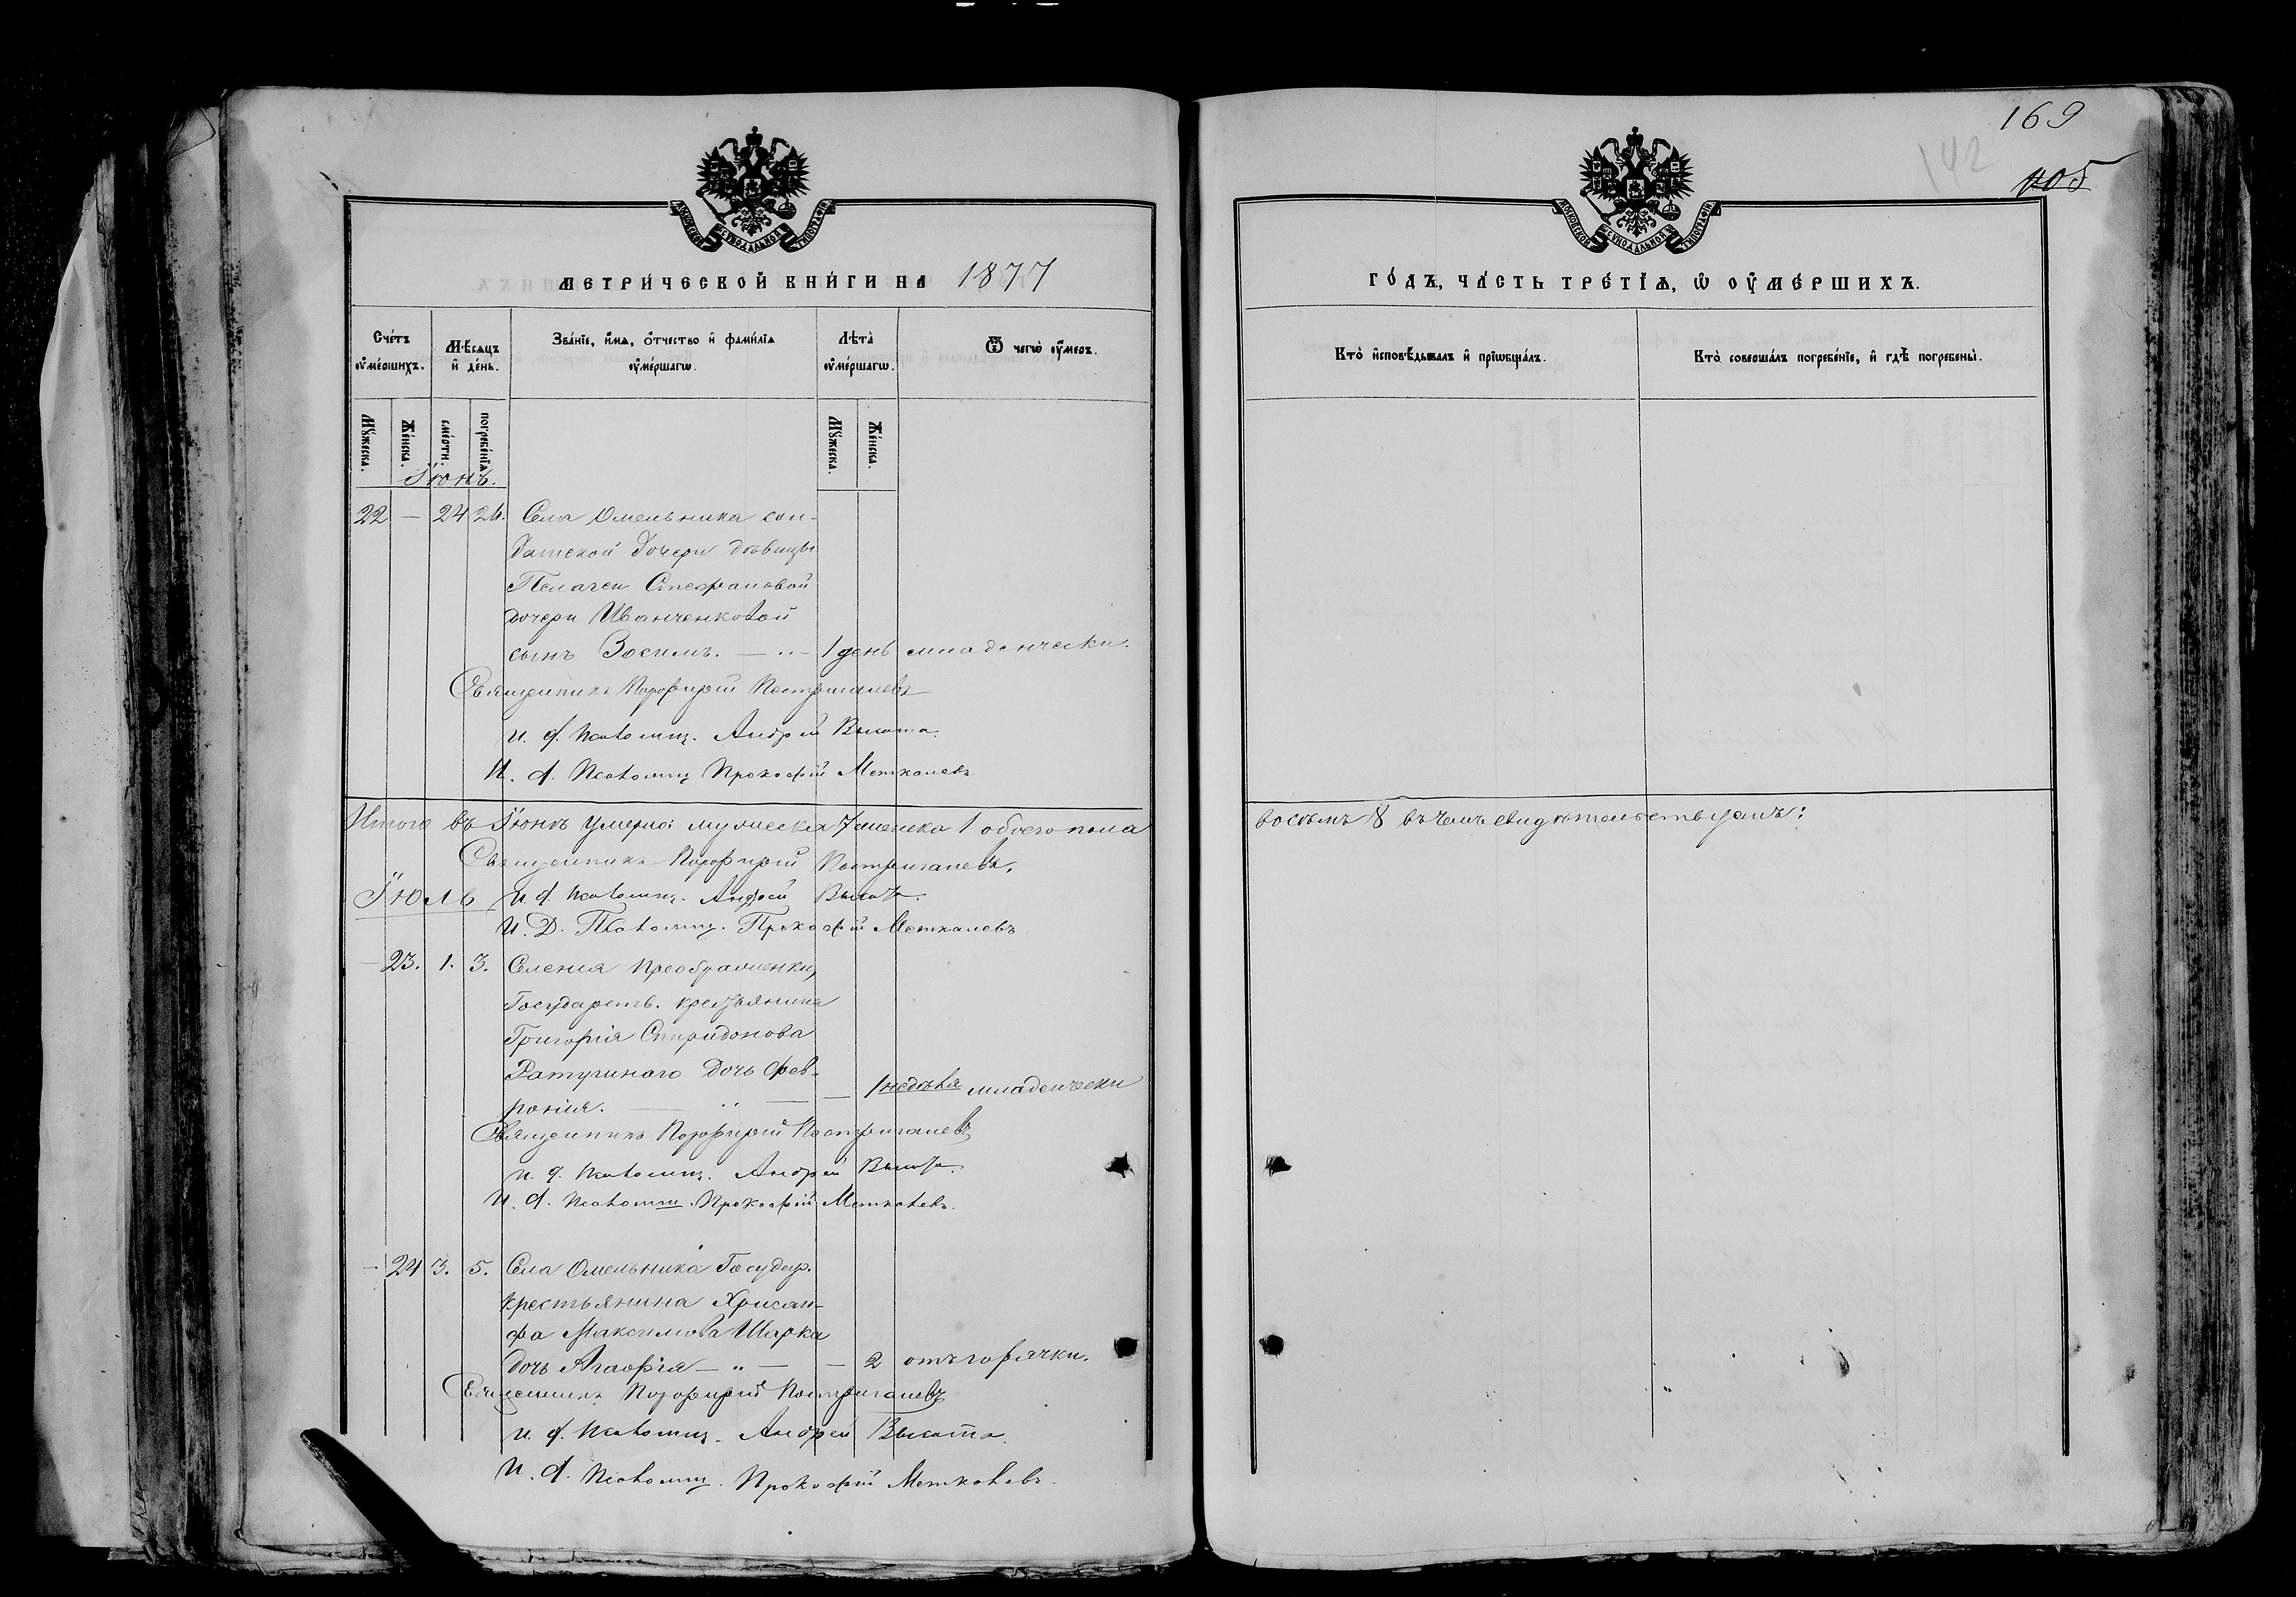 169
142
105
МОСКОВСКОЙ СѴНОДАЛЬНОЙ ТИПОГРАФІИ
МОСКОВСКОЙ СѴНОДАЛЬНОЙ ТИПОГРАФІИ
МЕТРИ́ЧЕСКОЙ КНИ́ГИ НА 1877
ГО́ДЪ, ЧА́СТЬ ТРЕ́ТІѦ, Ѡ ОУ҆МЕ́РШИХЪ.
Сче́тъ оу҆ме́ршихъ.
Мѣ́сяцъ и҆ де́нь.
Зва́нїе, и҆́мѧ, ѻ҆́тчество и҆ фами́лїѧ оу҆ме́ршагѡ.
Лѣ́та оу҆ме́ршагѡ.
Ѿ чегѡ̀ оу҆́меръ.
Кто̀ и҆сповѣ́дывалъ и҆ прїѡбща́лъ.
Кто̀ соверша́лъ погребе́нїе, и҆ гдѣ̀ погребены̀.
Мꙋ́жеска.
Же́нска.
сме́рти.
погребе́нїѧ.
Мꙋ́жеска.
Же́нска.
Іюнь.
22 — 24 26. Села Омельника сол-
датской дочери дѣвицы
Пелагеи Стефановой
дочери Иванченковой
сынъ Зосимъ. — „ — 1 день младенчески.
Священникъ Порфирій Постригалевъ
и. д. псаломщ. Андрей Высота.
И. д. Псаломщ Прокофій Меткалевъ
Итого въ Іюнѣ умерло: мужеска 7 женска 1 обоего пола
восьмъ 8 въ чемъ свидѣтельствуемъ:
Священникъ Порфирій Постригалевъ.
Іюль и. д. псаломщ. Андрей Высота.
И. Д. Псаломщ. Прокофій Меткалевъ
— 23. 1. 3. Селенія Преображенки,
Государств. крестьянина
Григорія Спиридонова
Ратушного дочь Фев-
ронія. — „ — — 1 недѣля младенчески
Священникъ Порфирій Постригалевъ
и. д. псаломщ. Андрей Высота.
И. д. Псаломщ. Прокофій Меткалевъ.
— 24 3. 5. Села Омельника Государ.
крестьянина Хрисан-
фа Максимова Шарка
дочь Агафія — „ — — 2 отъ горячки.
Священникъ Порфирій Постригалевъ
и. д. псаломщ. Андрей Высота
И. д. Псаломщ. Прокофій Меткалевъ.